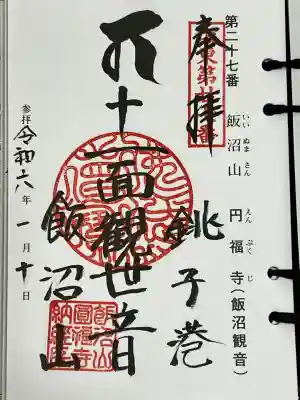 第二十七番 飯沼山 円福寺(飯沼観音)
いいぬまさん えんぷくじ
奉拝
銚子港
十一面観世音
飯沼山
参拝 令和六年一月十日